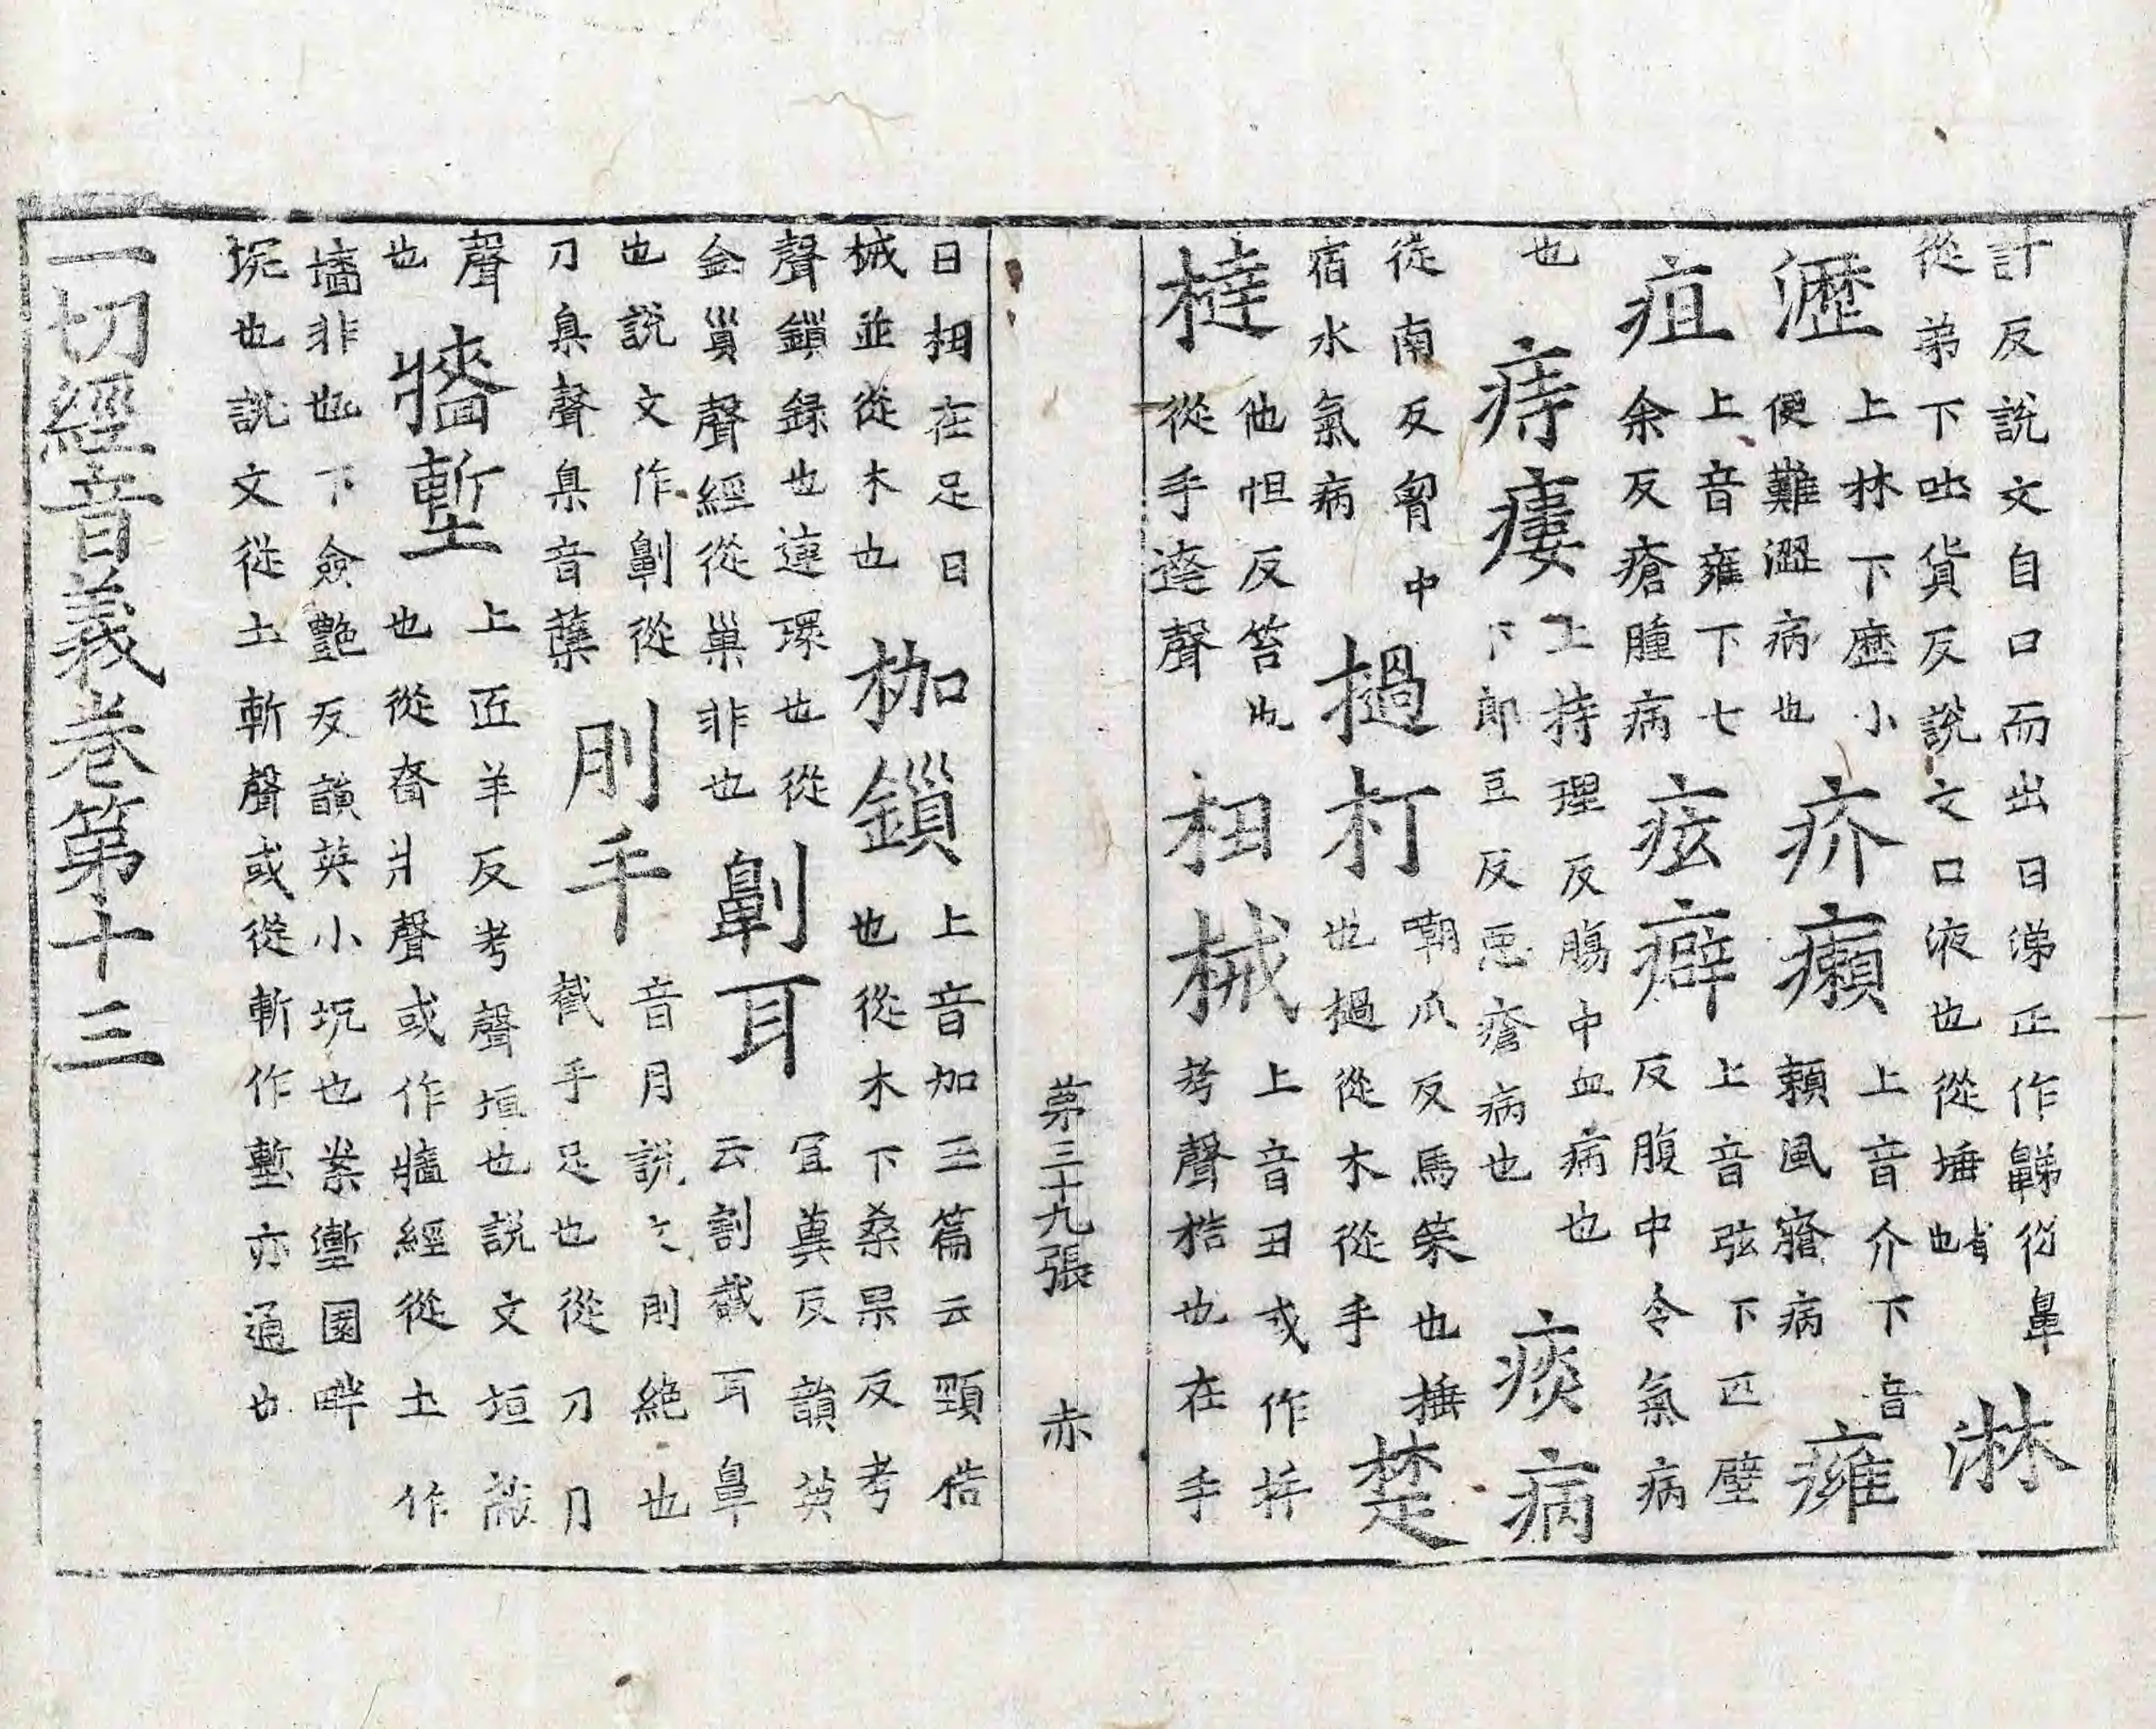 計反說文自口而出曰涕正作𪖦從鼻從弟下吐貨反說文口液也從埵省也淋
瀝上林下歷小便難澀病也疥癩上音介下音賴風瘡病癰
疽上音雍下七余反瘡腫病痃癖上音弦下匹壁反腹中令氣病
也痔瘻上持理反腸中血病也下郎豆反惡瘡病也痰病
從南反胷中宿水氣病撾打嘲爪反馬策也捶也撾從木從手楚
撻他怛反笞也從手達聲杻械上音丑或作杽考聲梏也在手
第三十九張 赤
曰杻在足曰械並從木也枷鎻上音加玉篇云頸梏也從木下桑果反考
聲鎻録也連環也從金𧴪聲經從巢非也劓耳冝冀反韻英云割截耳鼻
也說文作劓從刀臬聲臬音蘖刖手音月說文刖絕也截手足也從刀月
聲也牆塹上匠羊反考聲垣也説文垣蔽也從嗇爿聲或作牆經從土作
墻非也下僉豔反韻英小坑也案壍園畔坑也說文從土斬聲或從漸作壍亦通也
一切經音義卷第十三